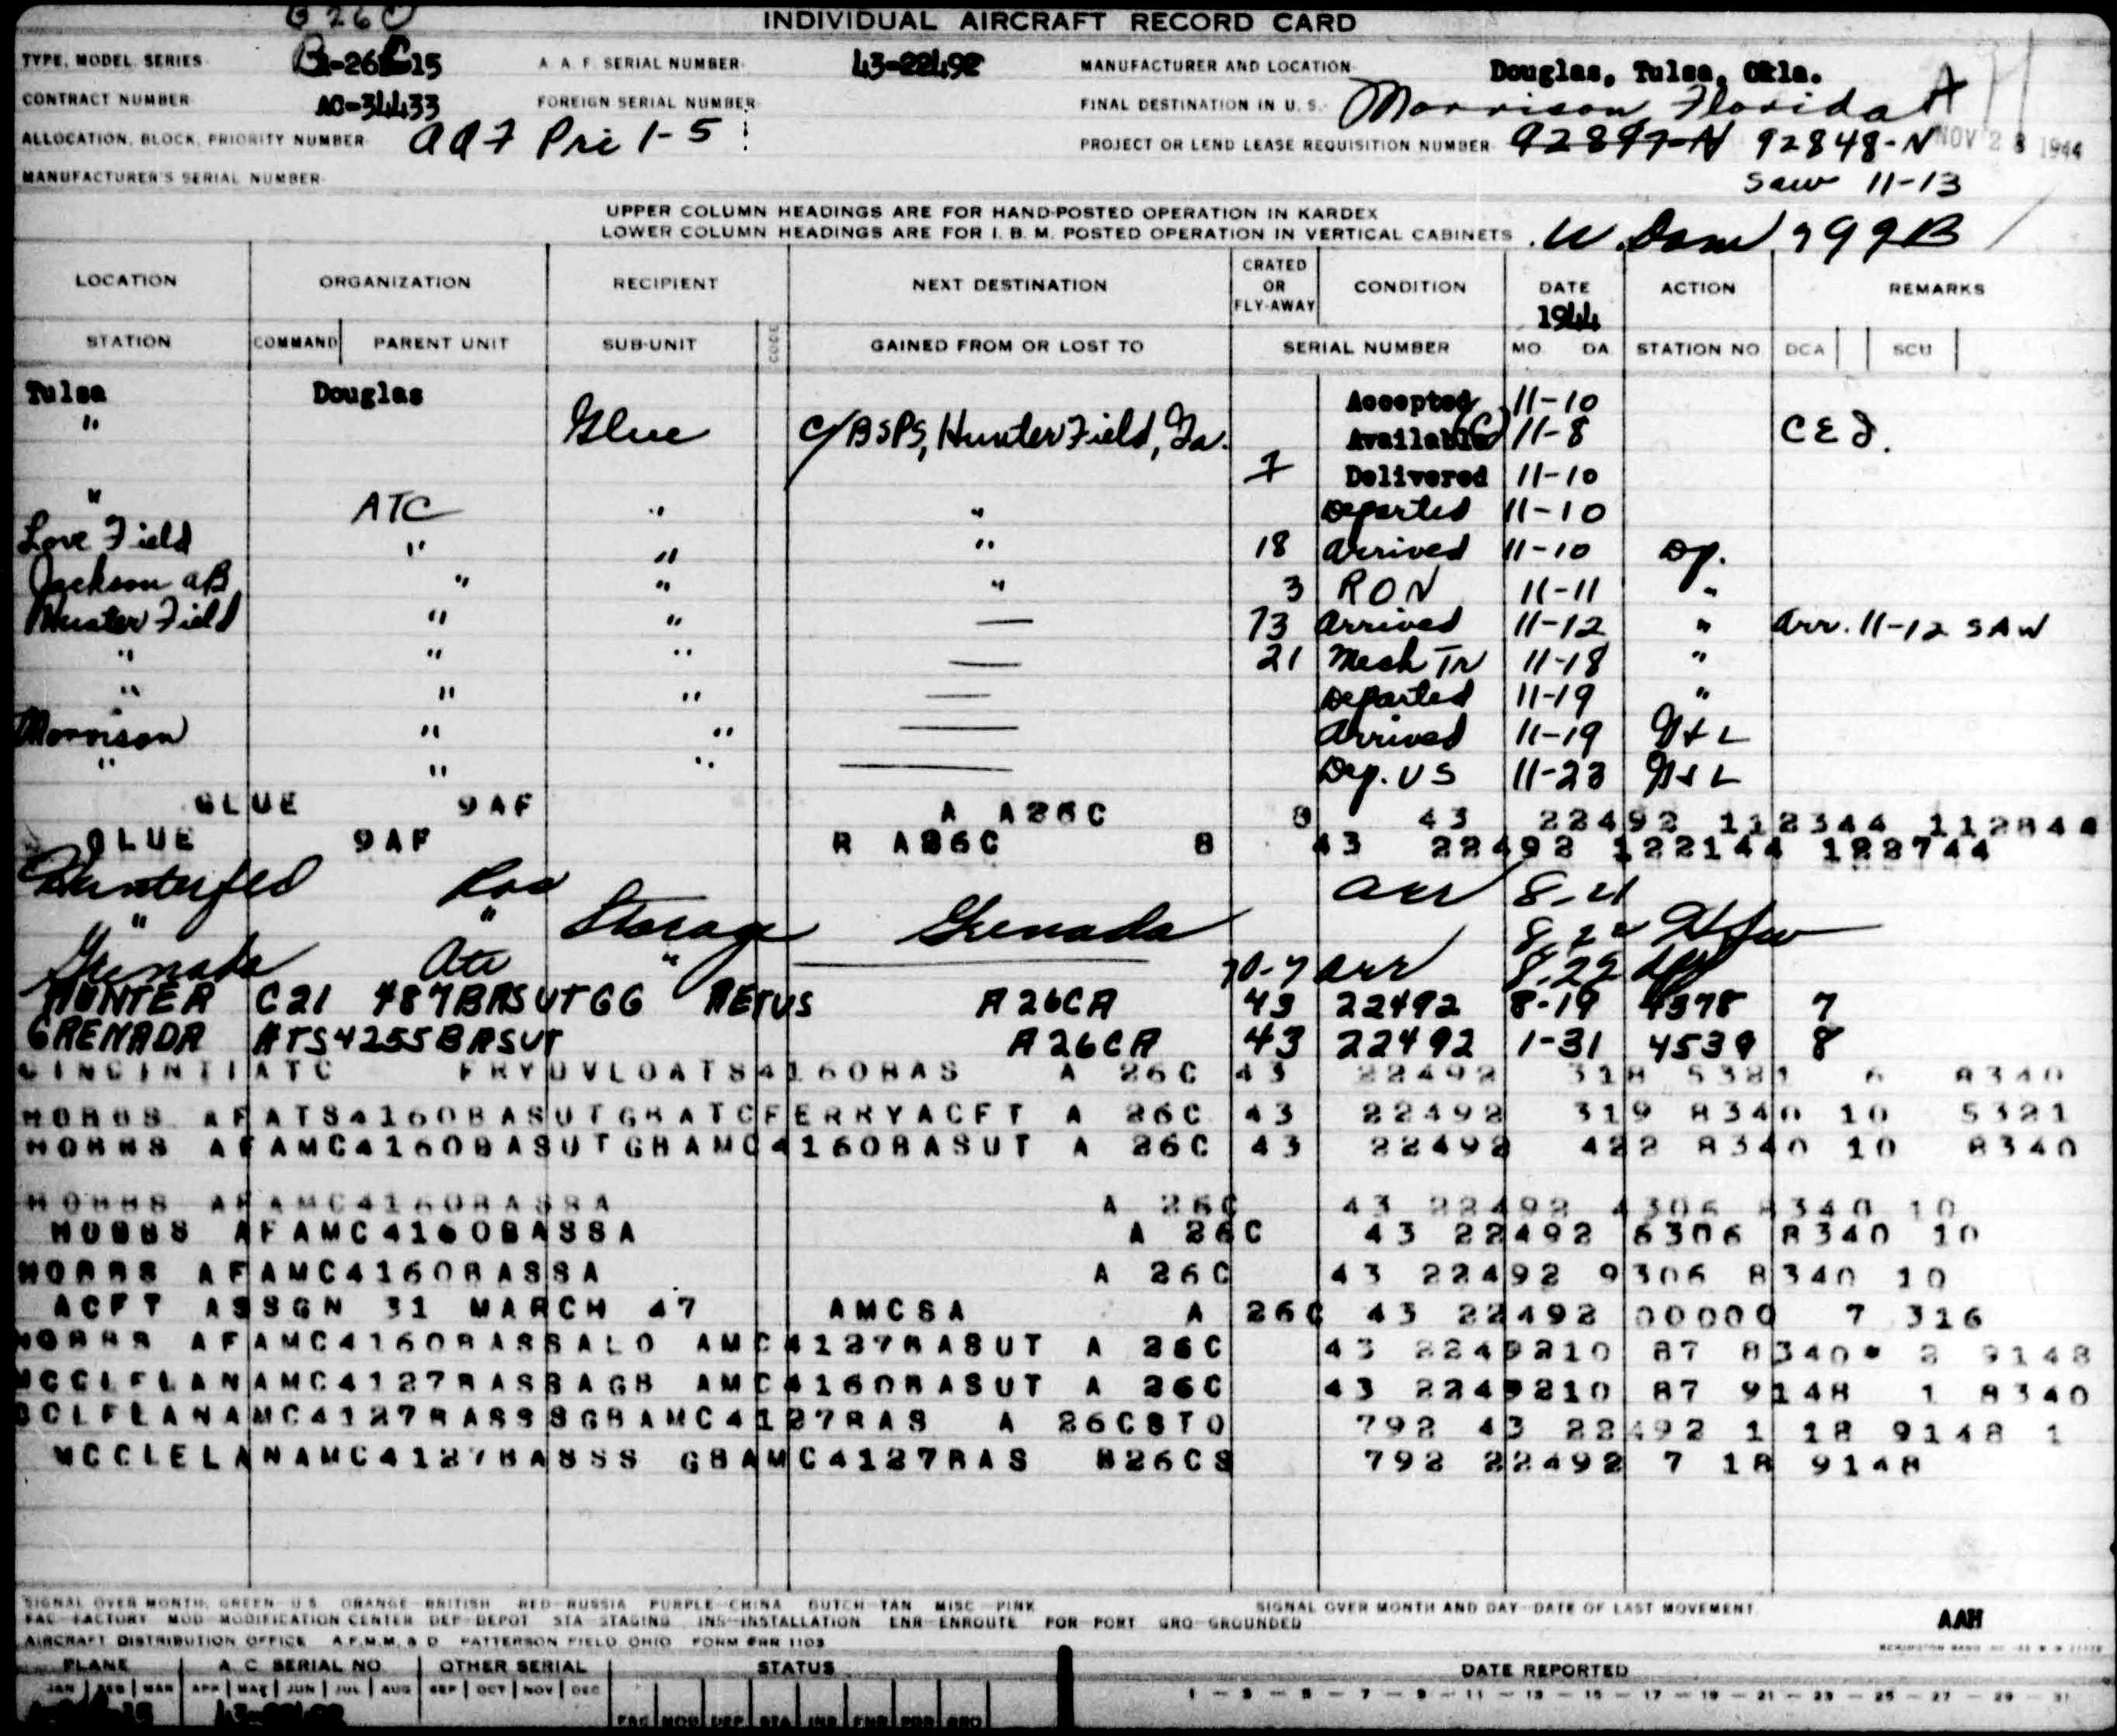 B 26 C
INDIVIDUAL AIRCRAFT RECORD CARD
TYPE, MODEL, SERIES B-26C15 A. A. F. SERIAL NUMBER 43-22492 MANUFACTURER AND LOCATION Douglas, Tulsa, Okla.
CONTRACT NUMBER AC-34433 FOREIGN SERIAL NUMBER FINAL DESTINATION IN U. S. Morrison Florida
ALLOCATION, BLOCK, PRIORITY NUMBER aaf Pri 1-5 PROJECT OR LEND LEASE REQUISITION NUMBER 92897-N 92848-N NOV 28 1944
MANUFACTURER'S SERIAL NUMBER Saw 11-13
UPPER COLUMN HEADINGS ARE FOR HAND-POSTED OPERATION IN KARDEX
LOWER COLUMN HEADINGS ARE FOR I. B. M. POSTED OPERATION IN VERTICAL CABINETS 999B
LOCATION ORGANIZATION RECIPIENT NEXT DESTINATION CRATED OR FLY-AWAY CONDITION DATE 1944 ACTION REMARKS
STATION COMMAND PARENT UNIT SUB-UNIT CODE GAINED FROM OR LOST TO SERIAL NUMBER MO. DA. STATION NO DCA SCU
Tulsa Douglas Accepted 11-10
" Glue C/BSPS, Hunter Field, Ga. Available (C) 11-8 CEJ.
Delivered 11-10
" ATC " " Departed 11-10
Love Field " " " 18 Arrived 11-10 Dp.
Jackson aB " " " 3 RON 11-11 "
Hunter Field " " — 73 Arrived 11-12 " Arr. 11-12 SAW
" " " — 21 Mech Tr 11-18 "
" " " — Departed 11-19 "
Morrison " " — Arrived 11-19
" " " — Dep. US 11-23
GLUE 9AF A A26C 8 43 22492 112344 112844
GLUE 9AF R A26C 8 43 22492 122144 122744
arr 8-21
" " Storage Grenada
Grenada " arr 8-22
HUNTER C21 487BASUTGG AETUS A26CA 43 22492 8-19 4378 7
GRENADA ATS4255BASUT A26CA 43 22492 1-31 4539 8
CINCINTIATC FRYDVLOATS4160BAS A 26C 43 22492 318 5321 6 8340
HOBBS AFATS4160BASUTGBATCFERRYACFT A 26C 43 22492 319 8340 10 5321
HOBBS AFAMC4160BASUTGBAMC4160BASUT A 26C 43 22492 422 8340 10 8340
HOBBS AFAMC4160BASSA A 26C 43 22492 4306 8340 10
HOBBS AFAMC4160BASSA A 26C 43 22492 6306 8340 10
HOBBS AFAMC4160BASSA A 26C 43 22492 9306 8340 10
ACFT ASSGN 31 MARCH 47 AMCSA A 26C 43 22492 00000 7 316
HOBBS AFAMC4160BASSALO AMC4127BASUT A 26C 43 2249210 87 8340* 2 9148
MCCLELANAMC4127BASSAGB AMC4160BASUT A 26C 43 2249210 87 9148 1 8340
CCLELANAMC4127BASSSGBAMC4127BAS A 26CSTO 792 43 22492 1 18 9148 1
MCCLELANAMC4127BASSS GBAMC4127BAS B26CS 792 22492 7 18 9148
SIGNAL OVER MONTH, GREEN-U S ORANGE-BRITISH RED-RUSSIA PURPLE-CHINA DUTCH-TAN MISC-PINK SIGNAL OVER MONTH AND DAY-DATE OF LAST MOVEMENT
FAC-FACTORY MOD-MODIFICATION CENTER DEP-DEPOT STA-STAGING INS-INSTALLATION ENR-ENROUTE POR-PORT GRO-GROUNDED AAH
AIRCRAFT DISTRIBUTION OFFICE A.F.M.M. & D. PATTERSON FIELD, OHIO FORM #RR 1103
PLANE A. C. SERIAL NO. OTHER SERIAL STATUS DATE REPORTED
JAN FEB MAR APR MAY JUN JUL AUG SEP OCT NOV DEC 1 - 3 - 5 - 7 - 9 - 11 - 13 - 15 - 17 - 19 - 21 - 23 - 25 - 27 - 29 - 31
FAC MOD DEP STA INS ENR POR GRO